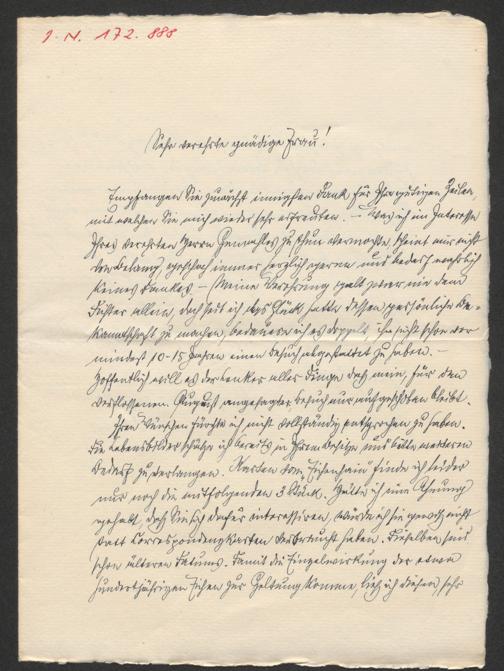 J. N. 172.888
Sehr verehrte gnädige Frau!
Empfangen Sie zunächst innigsten Dank für Ihre gütigen Zeilen,
mit welchen Sie mich wieder sehr erfreuten. – Was ich im Interesse
Ihres verehrten Herrn Gemahles zu thun vermochte, scheint mir nicht
von Belang, geschah immer herzlich gerne und bedarf wahrlich
keines Dankes. – Meine Verehrung galt zwar nie dem
Dichter allein, doch seit ich das Glück hatte dessen persönliche Be-
kanntschaft zu machen, bedauere ich es doppelt, Sie nicht schon vor
mindest 10-15 Jahren einen Besuch abgestattet zu haben. –
Hoffentlich will es der Lenker aller Dinge daß mein, für den
verflossenen August angesagter Besuch nur aufgeschoben bleibt.
Ihren Wünschen fürchte ich nicht vollständig entsprochen zu haben.
Die Lebensbilder schätze ich bereits in Ihrem Besitze und bitte weiteren
Bedarf zu verlangen. Karten vom "Eichenhain" finde ich leider
nur noch die mitfolgenden 3 Stück. Hätte ich eine Ahnung
gehabt, daß Sie sich dafür interessiren, würde ich sie gewiß nicht
statt Correspondenzkarten verbraucht haben. Dieselben sind
schon älteren Datums. Damit die Einzelwirkung der etwa
hundertjährigen Eichen zur Geltung komme, ließ ich diesen, sehr